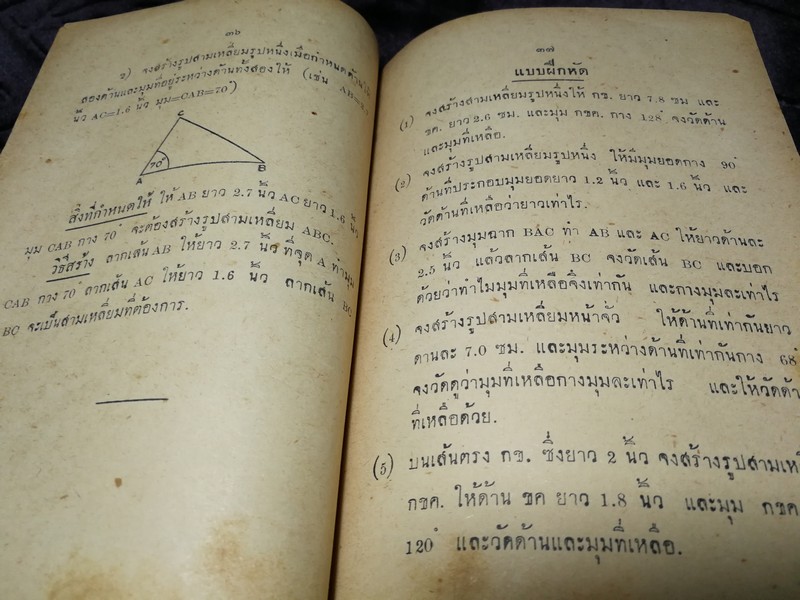 ๓๖
2) จงสร้างรูปสามเหลี่ยมรูปหนึ่งเมื่อกำหนดด้านให้
สองด้านและมุมที่อยู่ระหว่างด้านทั้งสองให้ (เช่น AB=2.7
นิ้ว AC=1.6 นิ้ว มุม=CAB=70°)
C
70°
A
B
สิ่งที่กำหนดให้ ให้ AB ยาว 2.7 นิ้ว AC ยาว 1.6 นิ้ว
มุม CAB กาง 70° จะต้องสร้างรูปสามเหลี่ยม ABC.
วิธีสร้าง ลากเส้น AB ให้ยาว 2.7 นิ้ว ที่จุด A ทำมุม
CAB กาง 70° ลากเส้น AC ให้ยาว 1.6 นิ้ว ลากเส้น BC
BC จะเป็นสามเหลี่ยมที่ต้องการ.
๓๗
แบบฝึกหัด
(1) จงสร้างสามเหลี่ยมรูปหนึ่งให้ กข. ยาว 7.8 ซม และ
ขค. ยาว 2.6 ซม. และมุม กขค. กาง 128° จงวัดด้าน
และมุมที่เหลือ.
(2) จงสร้างรูปสามเหลี่ยมรูปหนึ่ง ให้มีมุมยอดกาง 90°
ด้านที่ประกอบมุมยอดยาว 1.2 นิ้ว และ 1.6 นิ้ว และ
วัดด้านที่เหลือว่ายาวเท่าไร.
(3) จงสร้างมุมฉาก BAC ทำ AB และ AC ให้ยาวด้านละ
2.5 นิ้ว แล้วลากเส้น BC จงวัดเส้น BC และบอก
ด้วยว่าทำไมมุมที่เหลือจึงเท่ากัน และกางมุมละเท่าไร
(4) จงสร้างรูปสามเหลี่ยมหน้าจั่ว ให้ด้านที่เท่ากันยาว
ด้านละ 7.0 ซม. และมุมระหว่างด้านที่เท่ากันกาง 68°
จงวัดดูว่ามุมที่เหลือกางมุมละเท่าไร และให้วัดด้า
ที่เหลือด้วย.
(5) บนเส้นตรง กข. ซึ่งยาว 2 นิ้ว จงสร้างรูปสามเหลี่
กขค. ให้ด้าน ขค ยาว 1.8 นิ้ว และมุม กขค
120° และวัดด้านและมุมที่เหลือ.